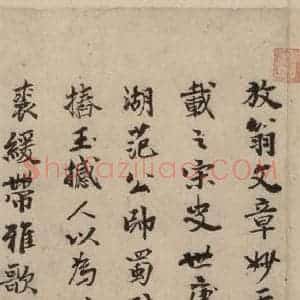 放翁文章妙
載之宗史世
湖范公帥蜀
摏玉撼人以為
裘緩帶雅歌
shufaziliao.com